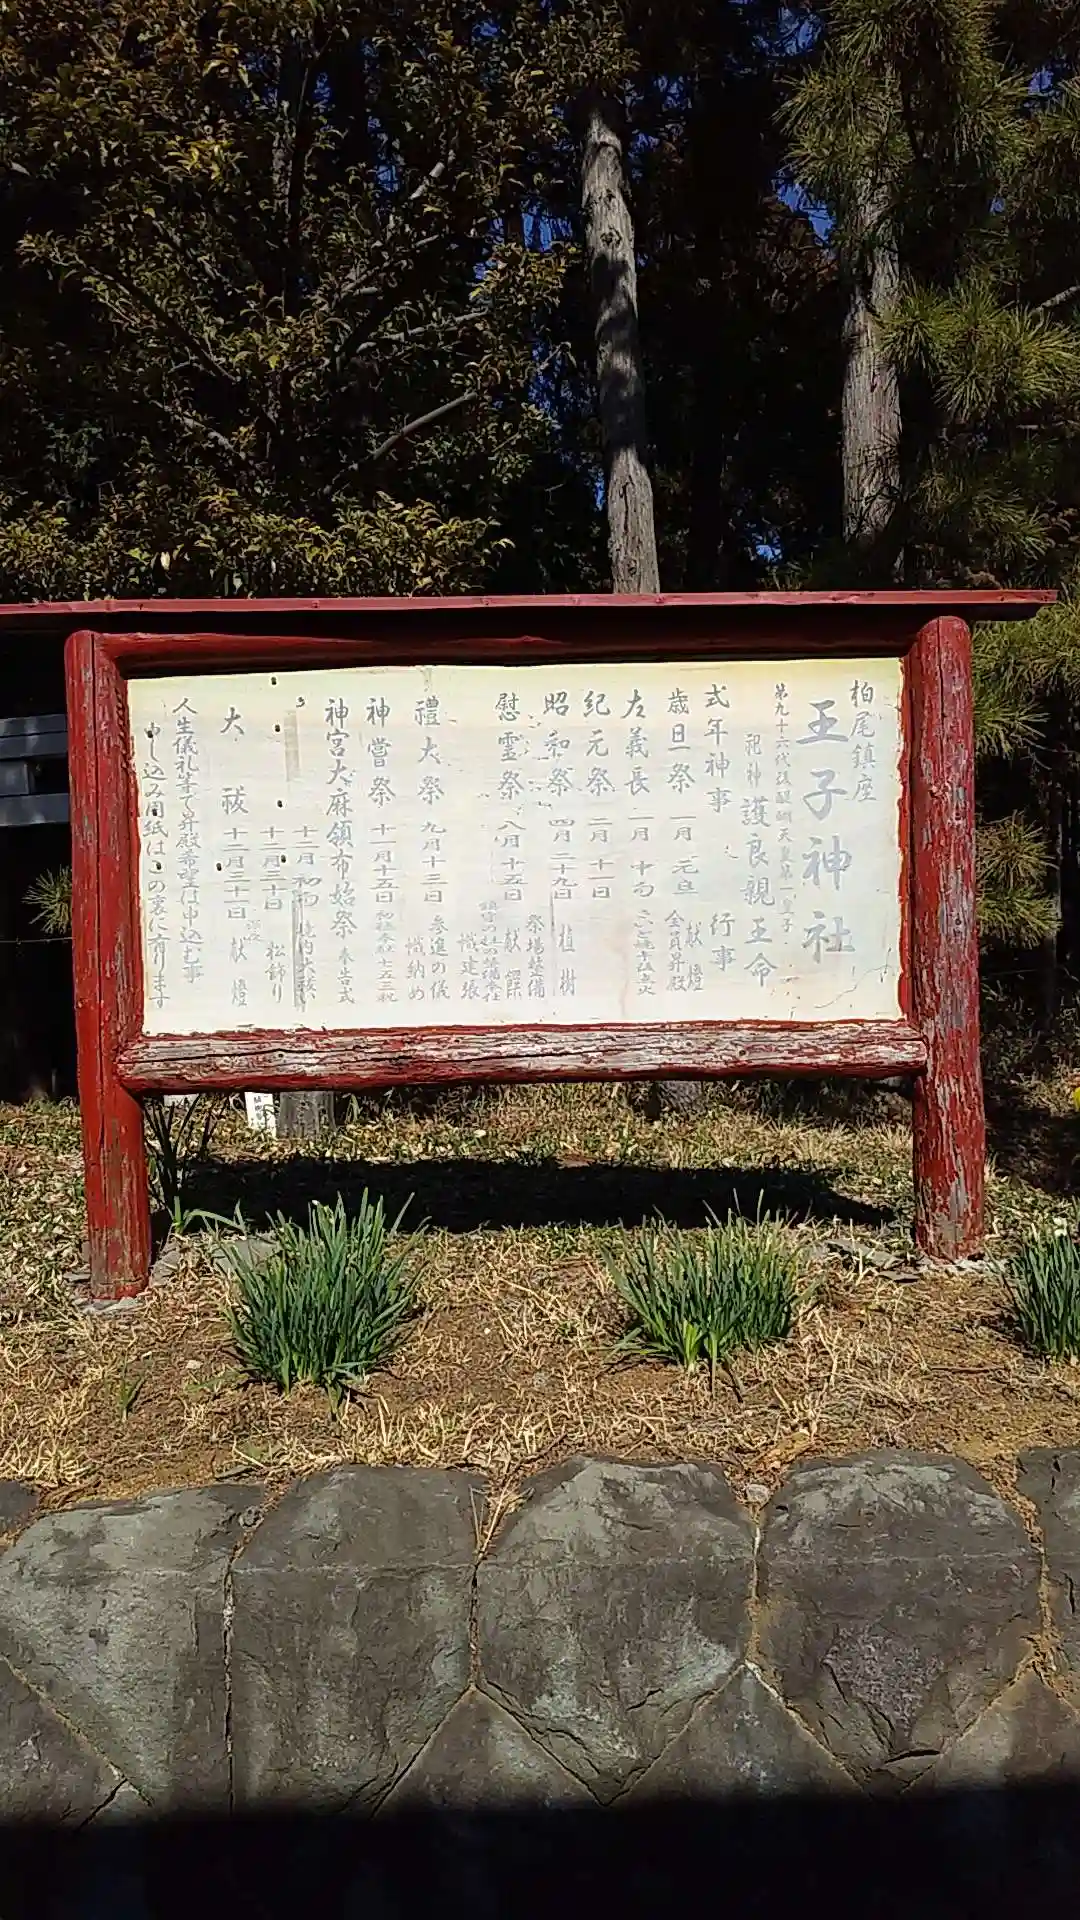 柏尾鎮座
王子神社
第九十六代後醍醐天皇第一皇子
祀神 護良親王命
式年神事 行事
歳旦祭 一月 元旦 献燈
全員昇殿
左義長 一月 中旬
紀元祭 二月 十一日
昭和祭 四月二十九日 植樹
慰霊祭 八月十五日 祭場整備
献饌
禮大祭 九月十三日 参進の儀
幟建張
幟納め
神嘗祭 十一月十五日
神宮大麻頒布始祭 奉告式
十二月 初旬
十二月三十日 松飾り
大祓 十二月三十一日 献燈
人生儀礼等で昇殿希望は申込む事
申し込み用紙はこの裏に有ります